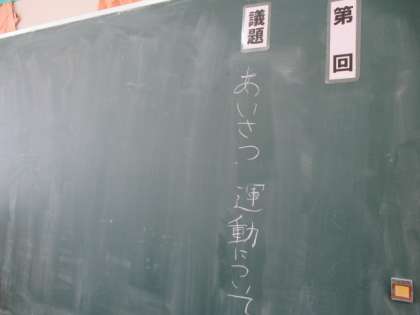 第 回
議題
あいさつ、運動について